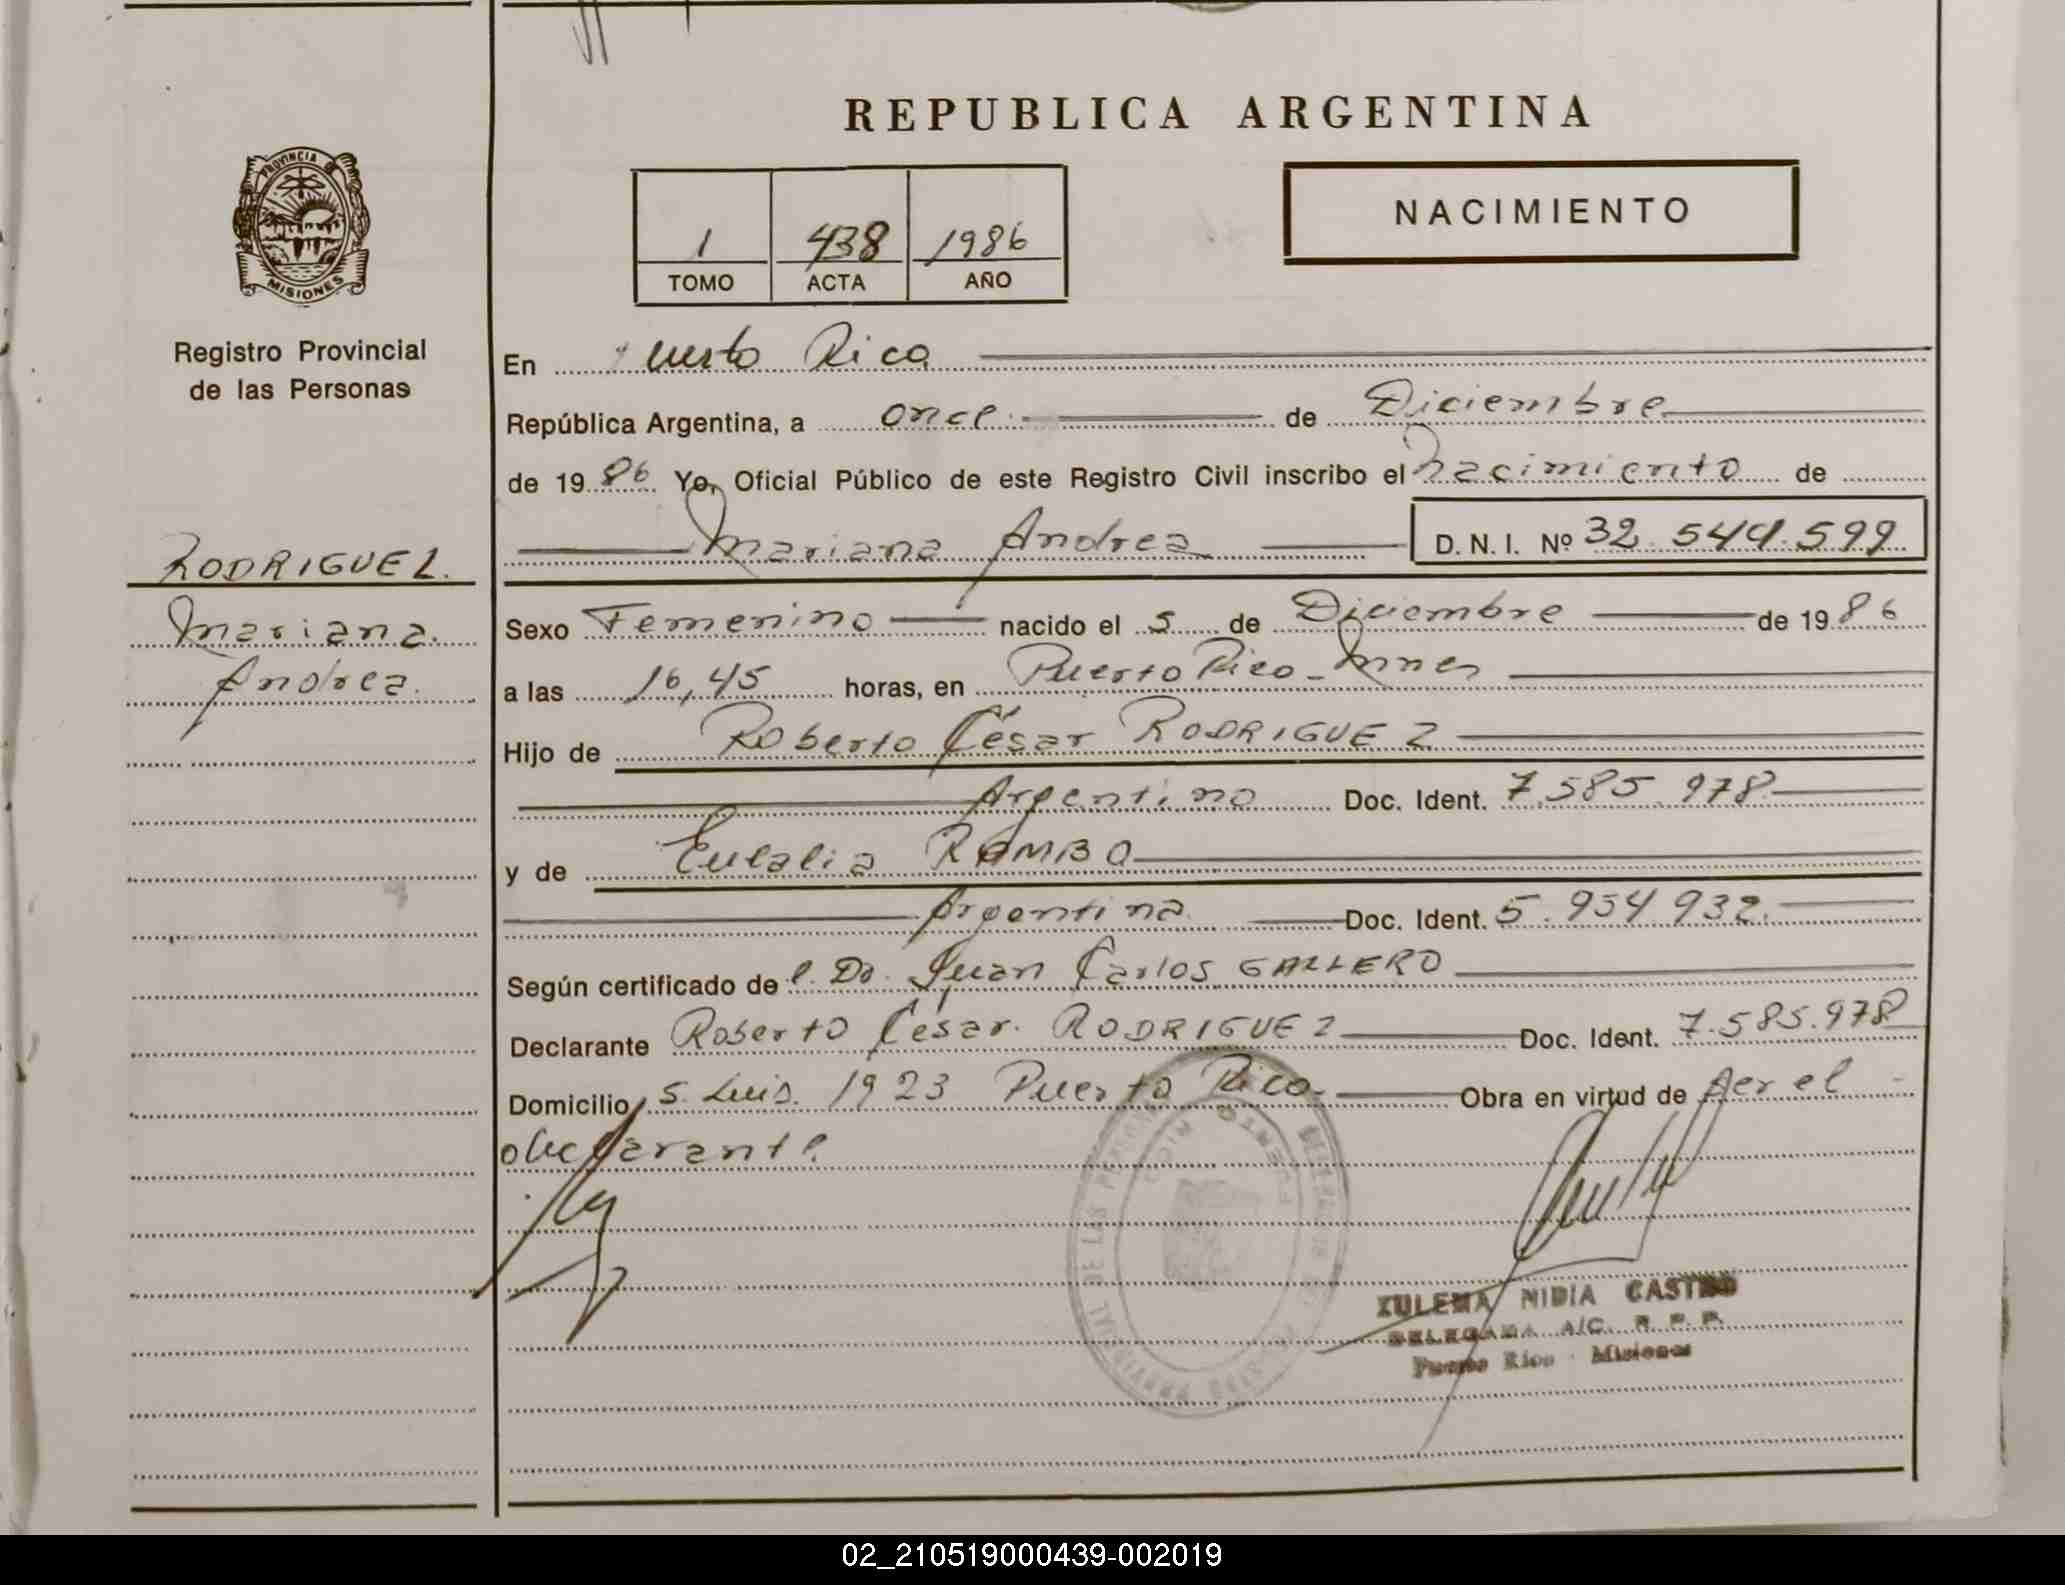 REPUBLICA ARGENTINA
PROVINCIA DE
MISIONES
Registro Provincial
de las Personas
1 438 1986
TOMO ACTA AÑO
NACIMIENTO
En Puerto Rico
República Argentina, a once de Diciembre
de 1986 Yo, Oficial Público de este Registro Civil inscribo el nacimiento de
Mariana Andrea D. N. I. Nº 32.544.599
RODRIGUEZ.
Mariana.
Andrea.
Sexo Femenino nacido el 5 de Diciembre de 1986
a las 16,45 horas, en Puerto Rico - Mnes
Hijo de Roberto César RODRIGUEZ
Argentino Doc. Ident. 7.585.978
y de Eulalia RAMBO
Argentina Doc. Ident. 5.954.932.
Según certificado de l. Dr. Juan Carlos GALLERO
Declarante Roberto César. RODRIGUEZ Doc. Ident. 7.585.978
Domicilio S. Luis. 1923 Puerto Rico. Obra en virtud de ser el
declarante.
PUERTO RICO
DE LAS PERSONAS
ZULEMA NIDIA CASTRO
DELEGADA A/C. R. P. P.
Puerto Rico - Misiones
02_210519000439-002019